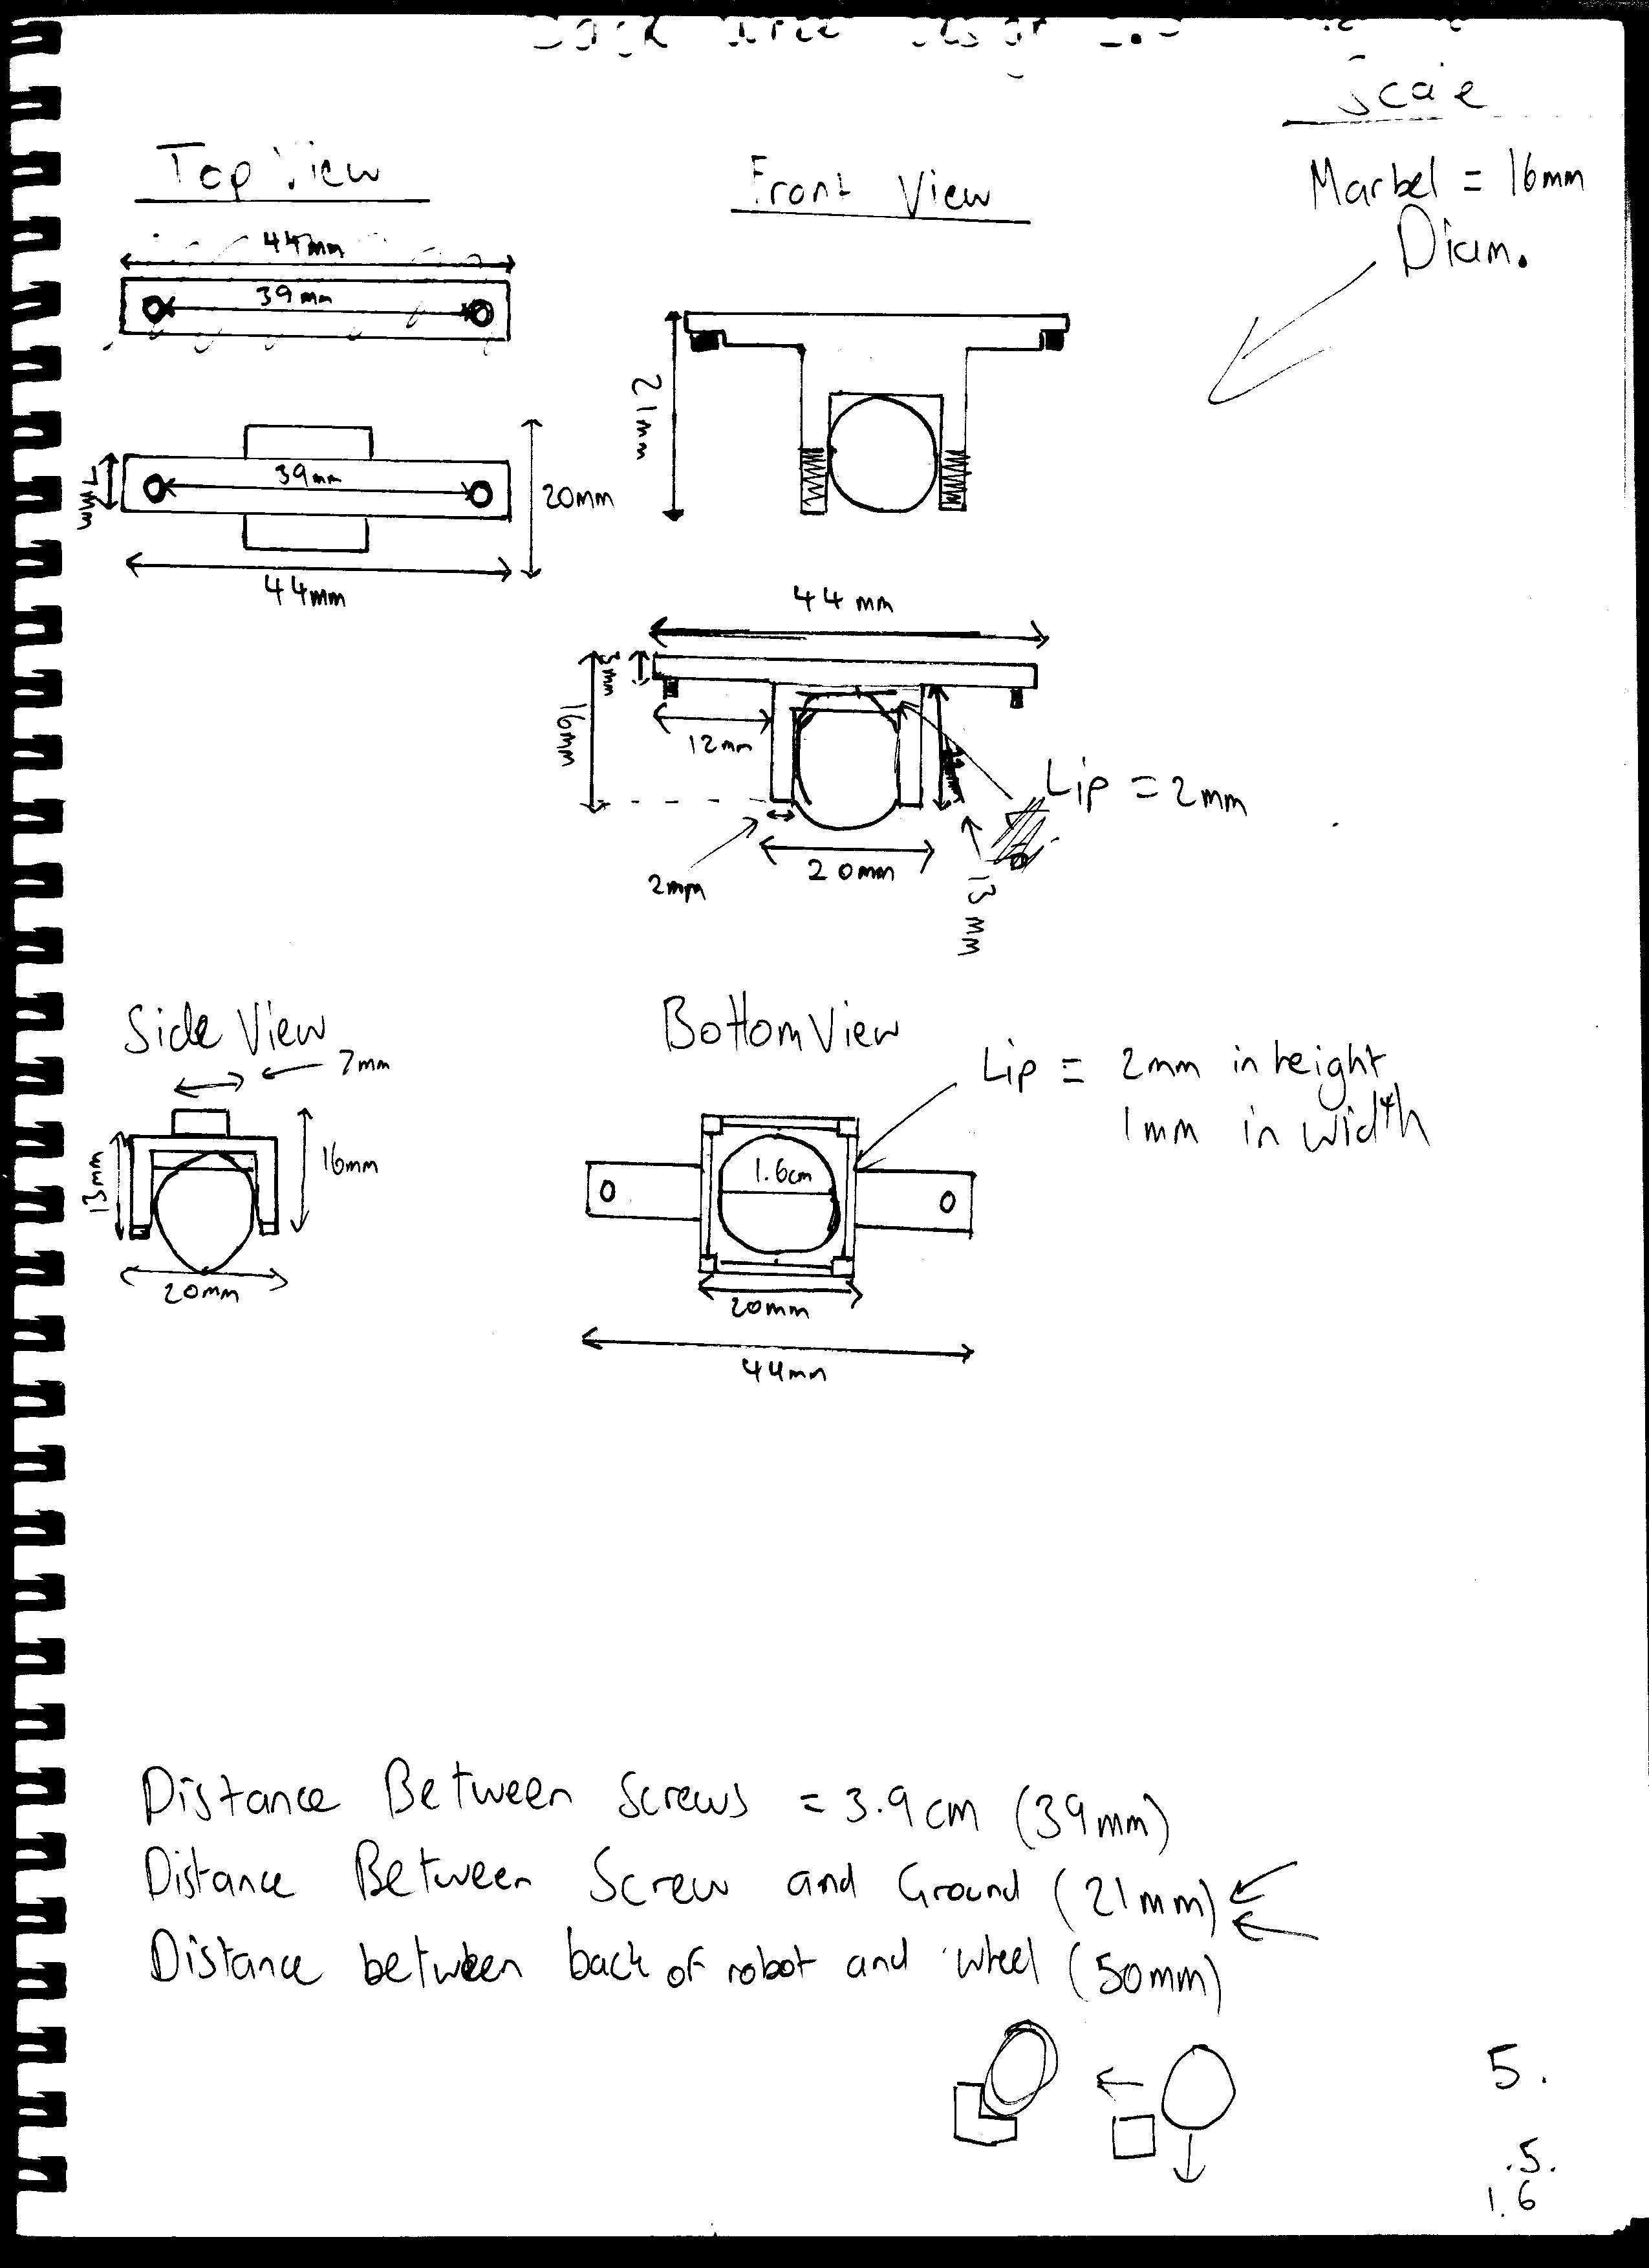 Scale
Top View
Front View
Marbel = 16mm
Diam.
44mm
39mm
21mm
39mm
7mm
20mm
44mm
44 mm
3mm
16mm
12mm
Lip = 2mm
2mm
20mm
13 mm
Side View
Bottom View
7mm
Lip = 2mm in height
1mm in width
13mm
16mm
1.6cm
20mm
20mm
44mm
Distance Between Screws = 3.9cm (39mm)
Distance Between Screw and Ground (21mm)
Distance between back of robot and wheel (50mm)
5.
.5.
1.6